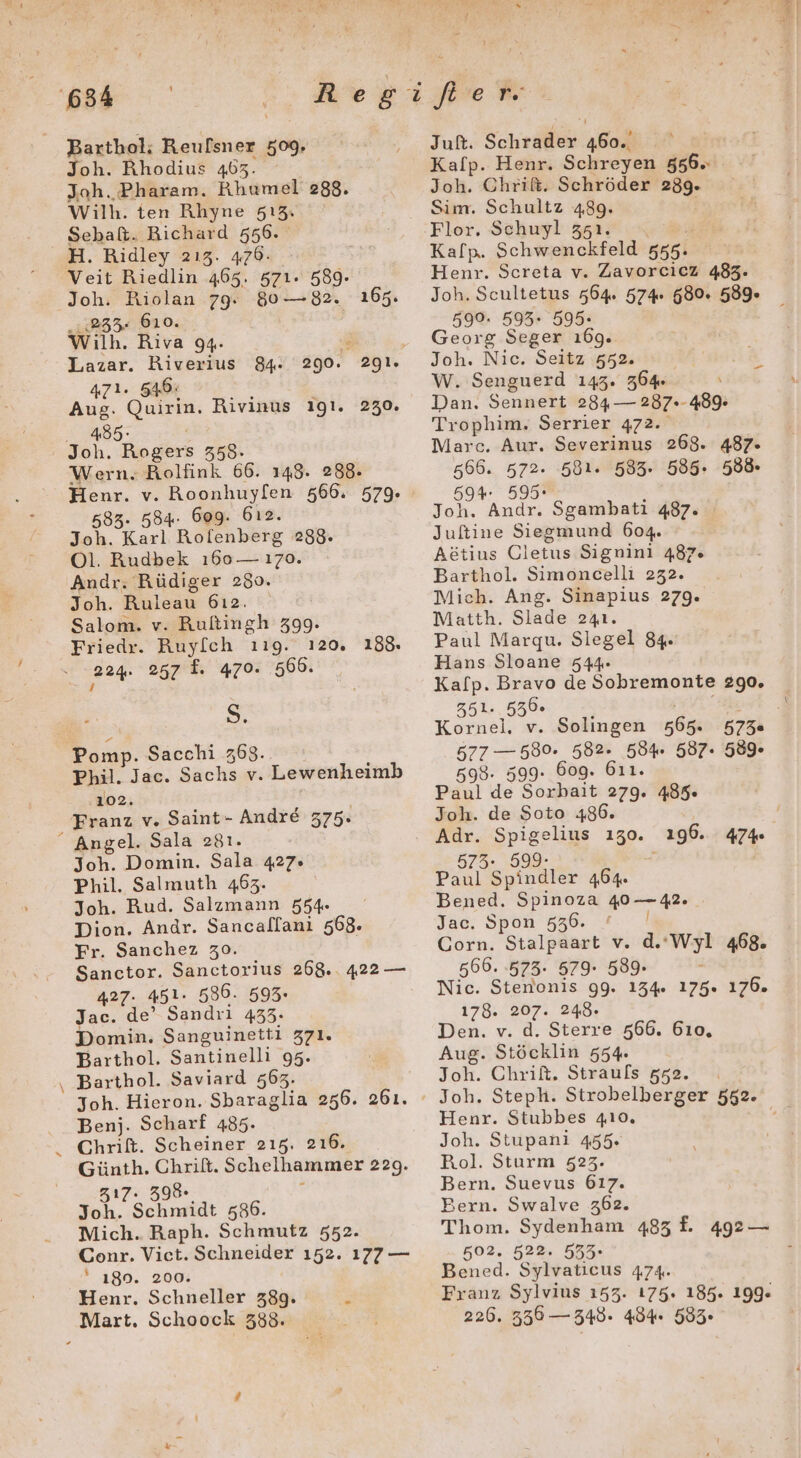 634 Regiſter.
Barthol. Reuſsner 509.
Joh. Rhodius 463.
Joh. Pharam. Rhumel 288.
Wilh. ten Rhyne 513.
Sebaſt. Richard 556.
H. Ridley 213. 476.
Veit Riedlin 465. 571. 589.
Joh. Riolan 79. 80—82. 165.
233. 610.
Wilh. Riva 94.
Lazar. Riverius 84. 290. 291.
471. 546.
Aug. Quirin. Rivinus 191. 230.
485.
Joh. Rogers 358.
Wern. Rolfink 66. 148. 288.
Henr. v. Roonhuyſen 566. 579.
583. 584. 609. 612.
Joh. Karl Roſenberg 288.
Ol. Rudbek 160—170.
Andr. Rüdiger 280.
Joh. Ruleau 612.
Salom. v. Ruſtingh 399.
Friedr. Ruyſch 119. 120. 188.
224. 257 f. 470. 566.
S.
Pomp. Sacchi 368.
Phil. Jac. Sachs v. Lewenheimb
102.
Franz v. Saint-André 375.
Angel. Sala 281.
Joh. Domin. Sala 427.
Phil. Salmuth 463.
Joh. Rud. Salzmann 554.
Dion. Andr. Sancaſſani 568.
Fr. Sanchez 30.
Sanctor. Sanctorius 268. 422—
427. 451. 586. 593.
Jac. de’ Sandri 433.
Domin. Sanguinetti 371.
Barthol. Santinelli 95.
Barthol. Saviard 563.
Joh. Hieron. Sbaraglia 256. 261.
Benj. Scharf 485.
Chriſt. Scheiner 215. 216.
Günth. Chriſt. Schelhammer 229.
317. 398.
Joh. Schmidt 586.
Mich. Raph. Schmutz 552.
Conr. Vict. Schneider 152. 177—
180. 200.
Henr. Schneller 389.
Mart. Schoock 388.
Juſt. Schrader 460.
Kaſp. Henr. Schreyen 556.
Joh. Chriſt. Schröder 289.
Sim. Schultz 489.
Flor. Schuyl 351.
Kaſp. Schwenckfeld 555.
Henr. Screta v. Zavorcicz 483.
Joh. Scultetus 564. 574. 580. 589.
590. 593. 595.
Georg Seger 169.
Joh. Nic. Seitz 552.
W. Senguerd 143. 364.
Dan. Sennert 284—287. 489.
Trophim. Serrier 472.
Marc. Aur. Severinus 268. 487.
566. 572. 581. 583. 585. 588.
594. 595.
Joh. Andr. Sgambati 487.
Juſtine Siegmund 604.
Aëtius Cletus Signini 487.
Barthol. Simoncelli 232.
Mich. Ang. Sinapius 279.
Matth. Slade 241.
Paul Marqu. Slegel 84.
Hans Sloane 544.
Kaſp. Bravo de Sobremonte 290.
351. 536.
Kornel. v. Solingen 565. 573.
577—580. 582. 584. 587. 589.
598. 599. 609. 611.
Paul de Sorbait 279. 485.
Joh. de Soto 486.
Adr. Spigelius 130. 196. 474.
573. 599.
Paul Spindler 464.
Bened. Spinoza 40—42.
Jac. Spon 536.
Corn. Stalpaart v. d. Wyl 468.
566. 573. 579. 589.
Nic. Stenonis 99. 134. 175. 176.
178. 207. 248.
Den. v. d. Sterre 566. 610.
Aug. Stöcklin 554.
Joh. Chriſt. Strauſs 552.
Joh. Steph. Strobelberger 552.
Henr. Stubbes 410.
Joh. Stupani 455.
Rol. Sturm 523.
Bern. Suevus 617.
Bern. Swalve 362.
Thom. Sydenham 483 f. 492—
502. 522. 533.
Bened. Sylvaticus 474.
Franz Sylvius 153. 175. 185. 199.
226. 336—348. 484. 583.